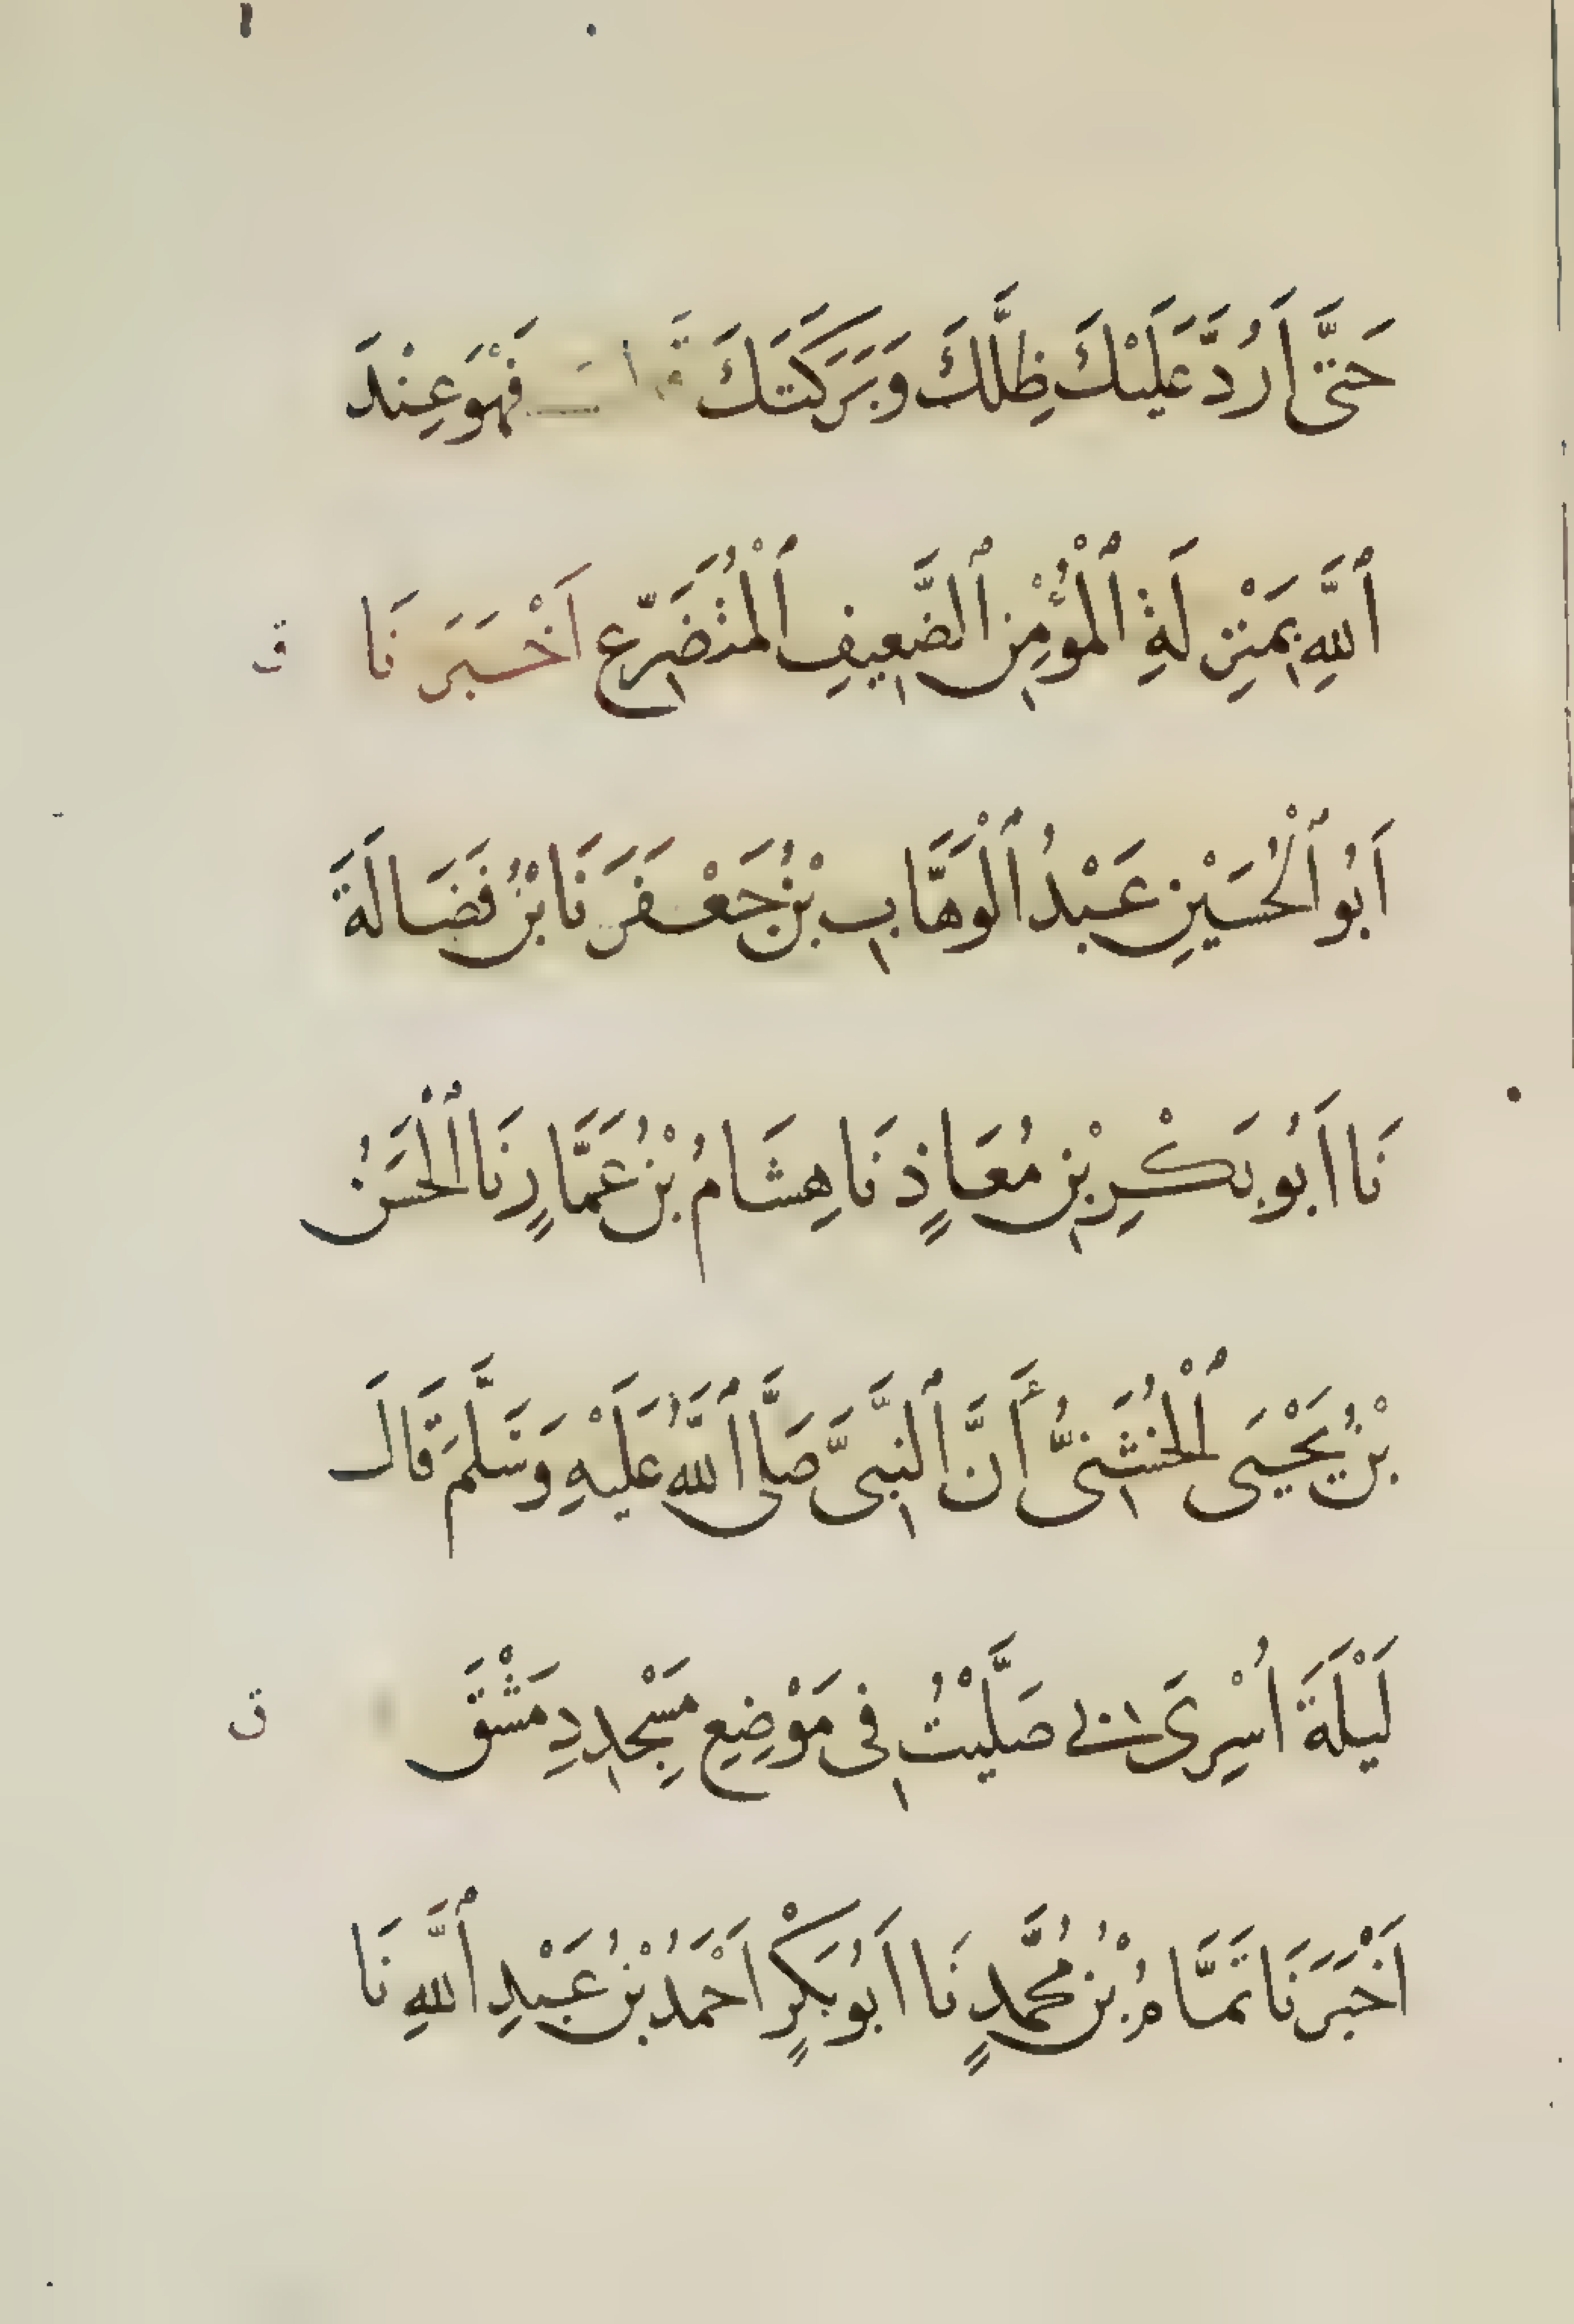 حَتَّى اَرُدَّ عَلَيْكَ ظِلَّكَ وَبَرَكَتَكَ قَالَ فَهْوَ عِنْدَ
ٱللَّهِ بِمَنْزِلَةِ ٱلْمُؤْمِنِ ٱلضَّعِيفِ ٱلْمُتَضَرِّعِ اَخْبَرَنَا ق
اَبُو ٱلْحُسَيْنِ عَبْدُ ٱلْوَهَّابِ بْنُ جَعْفَرَ نَا بْنُ فَضَالَةَ
نَا اَبُو بَكْرِ بْنِ مُعَاذٍ نَا هِشَامُ بْنُ عَمَّارٍ نَا ٱلْحَسَنُ
بْنُ يَحْيَى ٱلْخُشَنِيُّ أَنَّ ٱلنَّبِيَّ صَلَّى ٱللَّهُ عَلَيْهِ وَسَلَّمَ قَالَ
لَيْلَةَ اُسْرِىَ بِي صَلَّيْتُ فِى مَوْضِعِ مَسْجِدِ دِمَشْقَ ق
اَخْبَرَنَا تَمَّامُ بْنُ مُحَمَّدٍ نَا اَبُو بَكْرٍ اَحْمَدُ بْنُ عَبْدِ ٱللَّهِ نَا